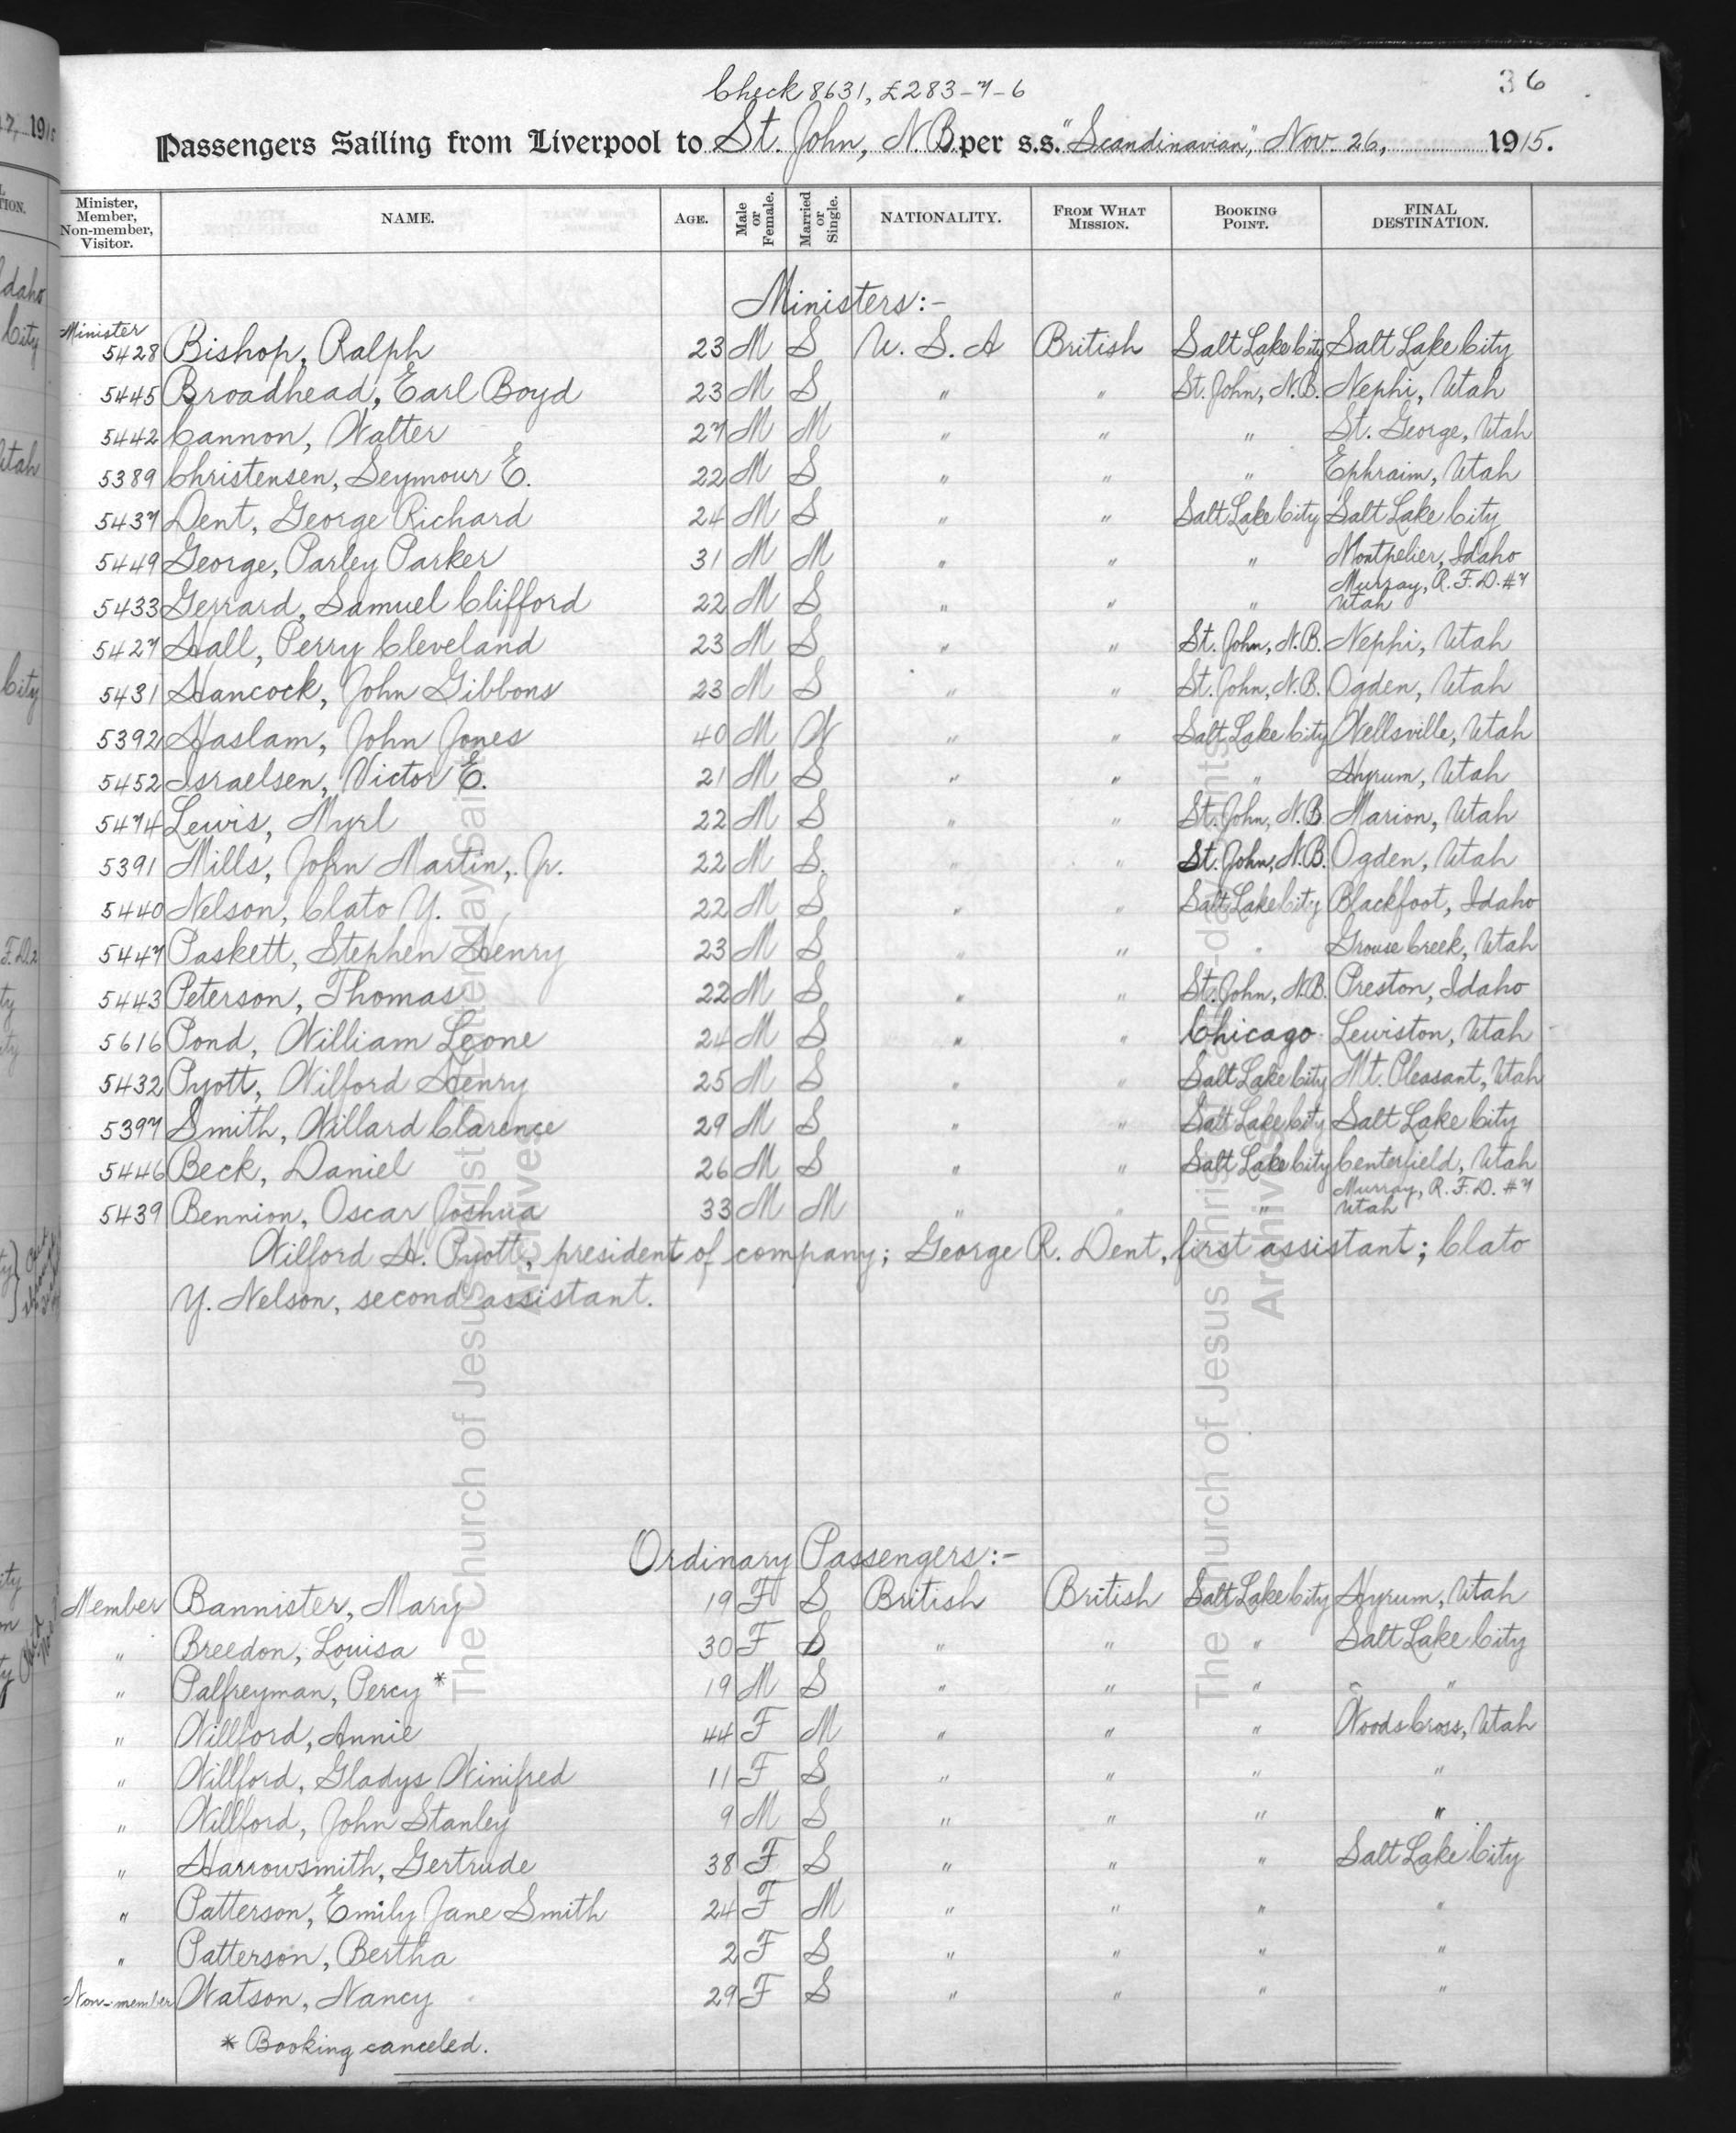 Check 8631, £283-7-6
36
Passengers Sailing from Liverpool to St. John, N.B. per s.s. "Scandinavian," Nov. 26, 1915.
Minister, Member, Non-member, Visitor. NAME. AGE. Male or Female. Married or Single. NATIONALITY. FROM WHAT MISSION. BOOKING POINT. FINAL DESTINATION.
Ministers:-
Minister
5428 Bishop, Ralph 23 M S U. S. A British Salt Lake City Salt Lake City
5445 Broadhead, Earl Boyd 23 M S " " St. John, N.B. Nephi, Utah
5442 Cannon, Walter 27 M M " " " St. George, Utah
5389 Christensen, Seymour E. 22 M S " " " Ephraim, Utah
5437 Dent, George Richard 24 M S " " Salt Lake City Salt Lake City
5449 George, Parley Parker 31 M M " " " Montpelier, Idaho
5433 Gerrard, Samuel Clifford 22 M S " " " Murray, R. F. D. #7 Utah
5427 Hall, Perry Cleveland 23 M S " " St. John, N.B. Nephi, Utah
5431 Hancock, John Gibbons 23 M S " " St. John, N.B. Ogden, Utah
5392 Haslam, John Jones 40 M W " " Salt Lake City Wellsville, Utah
5452 Israelsen, Victor E. 21 M S " " " Hyrum, Utah
5474 Lewis, Myrl 22 M S " " St. John, N.B. Marion, Utah
5391 Mills, John Martin, Jr. 22 M S. " " St. John, N.B. Ogden, Utah
5440 Nelson, Clato Y. 22 M S " " Salt Lake City Blackfoot, Idaho
5447 Paskett, Stephen Henry 23 M S " " " Grouse Creek, Utah
5443 Peterson, Thomas 22 M S " " St. John, N.B. Preston, Idaho
5616 Pond, William Leone 24 M S " " Chicago Lewiston, Utah
5432 Pyott, Wilford Henry 25 M S " " Salt Lake City Mt. Pleasant, Utah
5397 Smith, Willard Clarence 29 M S " " Salt Lake City Salt Lake City
5446 Beck, Daniel 26 M S " " Salt Lake City Centerfield, Utah
5439 Bennion, Oscar Joshua 33 M M " " " Murray, R. F. D. #7 Utah
Wilford H. Pyott, president of company; George R. Dent, first assistant; Clato
Y. Nelson, second assistant.
Ordinary Passengers:-
Member Bannister, Mary 19 F S British British Salt Lake City Hyrum, Utah
" Breedon, Louisa 30 F S " " " Salt Lake City
" Palfreyman, Percy * 19 M S " " " " "
" Willford, Annie 44 F M " " " Woods Cross, Utah
" Willford, Gladys Winifred 11 F S " " " "
" Willford, John Stanley 9 M S " " " "
" Harrowsmith, Gertrude 38 F S " " " Salt Lake City
" Patterson, Emily Jane Smith 24 F M " " " "
" Patterson, Bertha 2 F S " " " "
Non-member Watson, Nancy 29 F S " " " "
* Booking canceled.
The Church of Jesus Christ of Latter-day Saints
Archives
The Church of Jesus Christ of Latter-day Saints
Archives